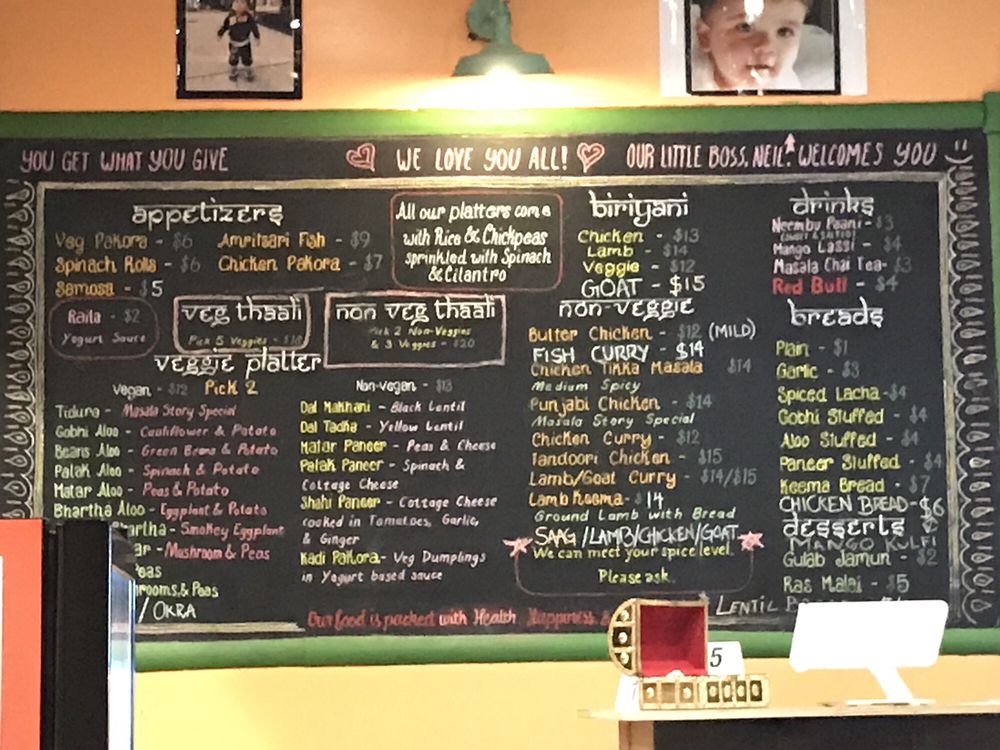 YOU GET WHAT YOU GIVE
WE LOVE YOU ALL!
OUR LITTLE BOSS, NEIL WELCOMES YOU
appetizers
Veg Pakora - $6
Amritsari Fish - $9
Spinach Rolls - $6
Chicken Pakora - $7
Samosa - $5
Raita - $2
Yogurt Sauce
veg thaali
Pick 5 Veggies -
non veg thaali
Pick 2 Non-Veggies
& 3 Veggies - $20
All our platters come
with Rice & Chickpeas
sprinkled with Spinach
& Cilantro
veggie platter
Vegan - $12
Pick 2
Non-Vegan - $13
- Masala Story Special
Gobhi Aloo - Cauliflower & Potato
Beans Aloo - Green Beans & Potato
Palak Aloo - Spinach & Potato
Matar Aloo - Peas & Potato
Bhartha Aloo - Eggplant & Potato
Bhartha - Smokey Eggplant
ar - Mushroom & Peas
Peas
rooms & Peas
/ OKRA
Dal Makhani - Black Lentil
Dal Tadka - Yellow Lentil
Matar Paneer - Peas & Cheese
Palak Paneer - Spinach &
Cottage Cheese
Shahi Paneer - Cottage Cheese
cooked in Tomatoes, Garlic,
& Ginger
Kadi Pakora - Veg Dumplings
in Yogurt based sauce
Our food is packed with Health Happiness &
biriyani
Chicken - $13
Lamb - $14
Veggie - $12
GOAT - $15
non-veggie
Butter Chicken - $12 (MILD)
FISH CURRY - $14
Chicken Tikka Masala $14
Medium Spicy
Punjabi Chicken - $14
Masala Story Special
Chicken Curry - $12
Tandoori Chicken - $15
Lamb/Goat Curry - $14/$15
Lamb Keema - $14
Ground Lamb with Bread
SAAG /LAMB/CHICKEN/GOAT
We can meet your spice level.
Please ask.
drinks
Neembu Paani - $3
(SWEET & SALTED)
Mango Lassi - $4
Masala Chai Tea - $3
Red Bull - $4
breads
Plain - $1
Garlic - $3
Spiced Lacha - $4
Gobhi Stuffed - $4
Aloo Stuffed - $4
Paneer Stuffed - $4
Keema Bread - $7
CHICKEN BREAD - $6
desserts
MANGO KULFI
Gulab Jamun - $2
Ras Malai - $5
LENTIL
5